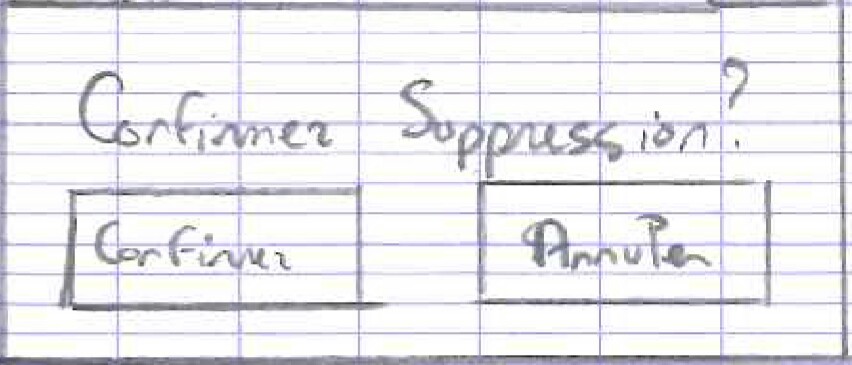 Confirmer Suppression?
Confirmer Annuler